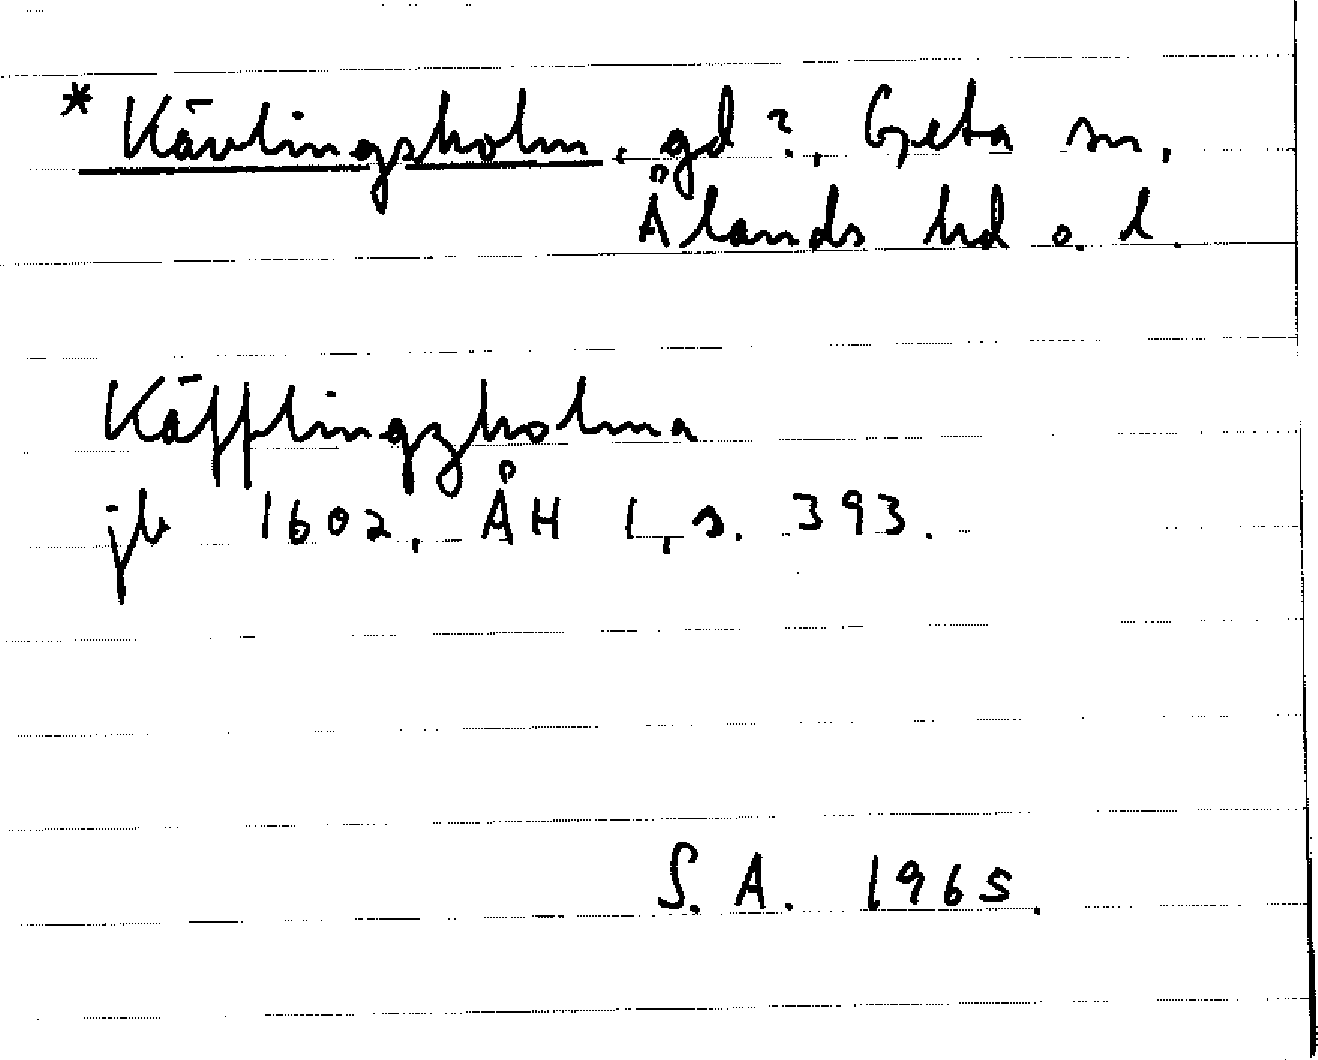 * Kävlingsholm, gd?, Geta sn,
Ålands hd o. l.
Käfflingzholma
jb 1602, ÅH 1, s. 393.
S. A. 1965.